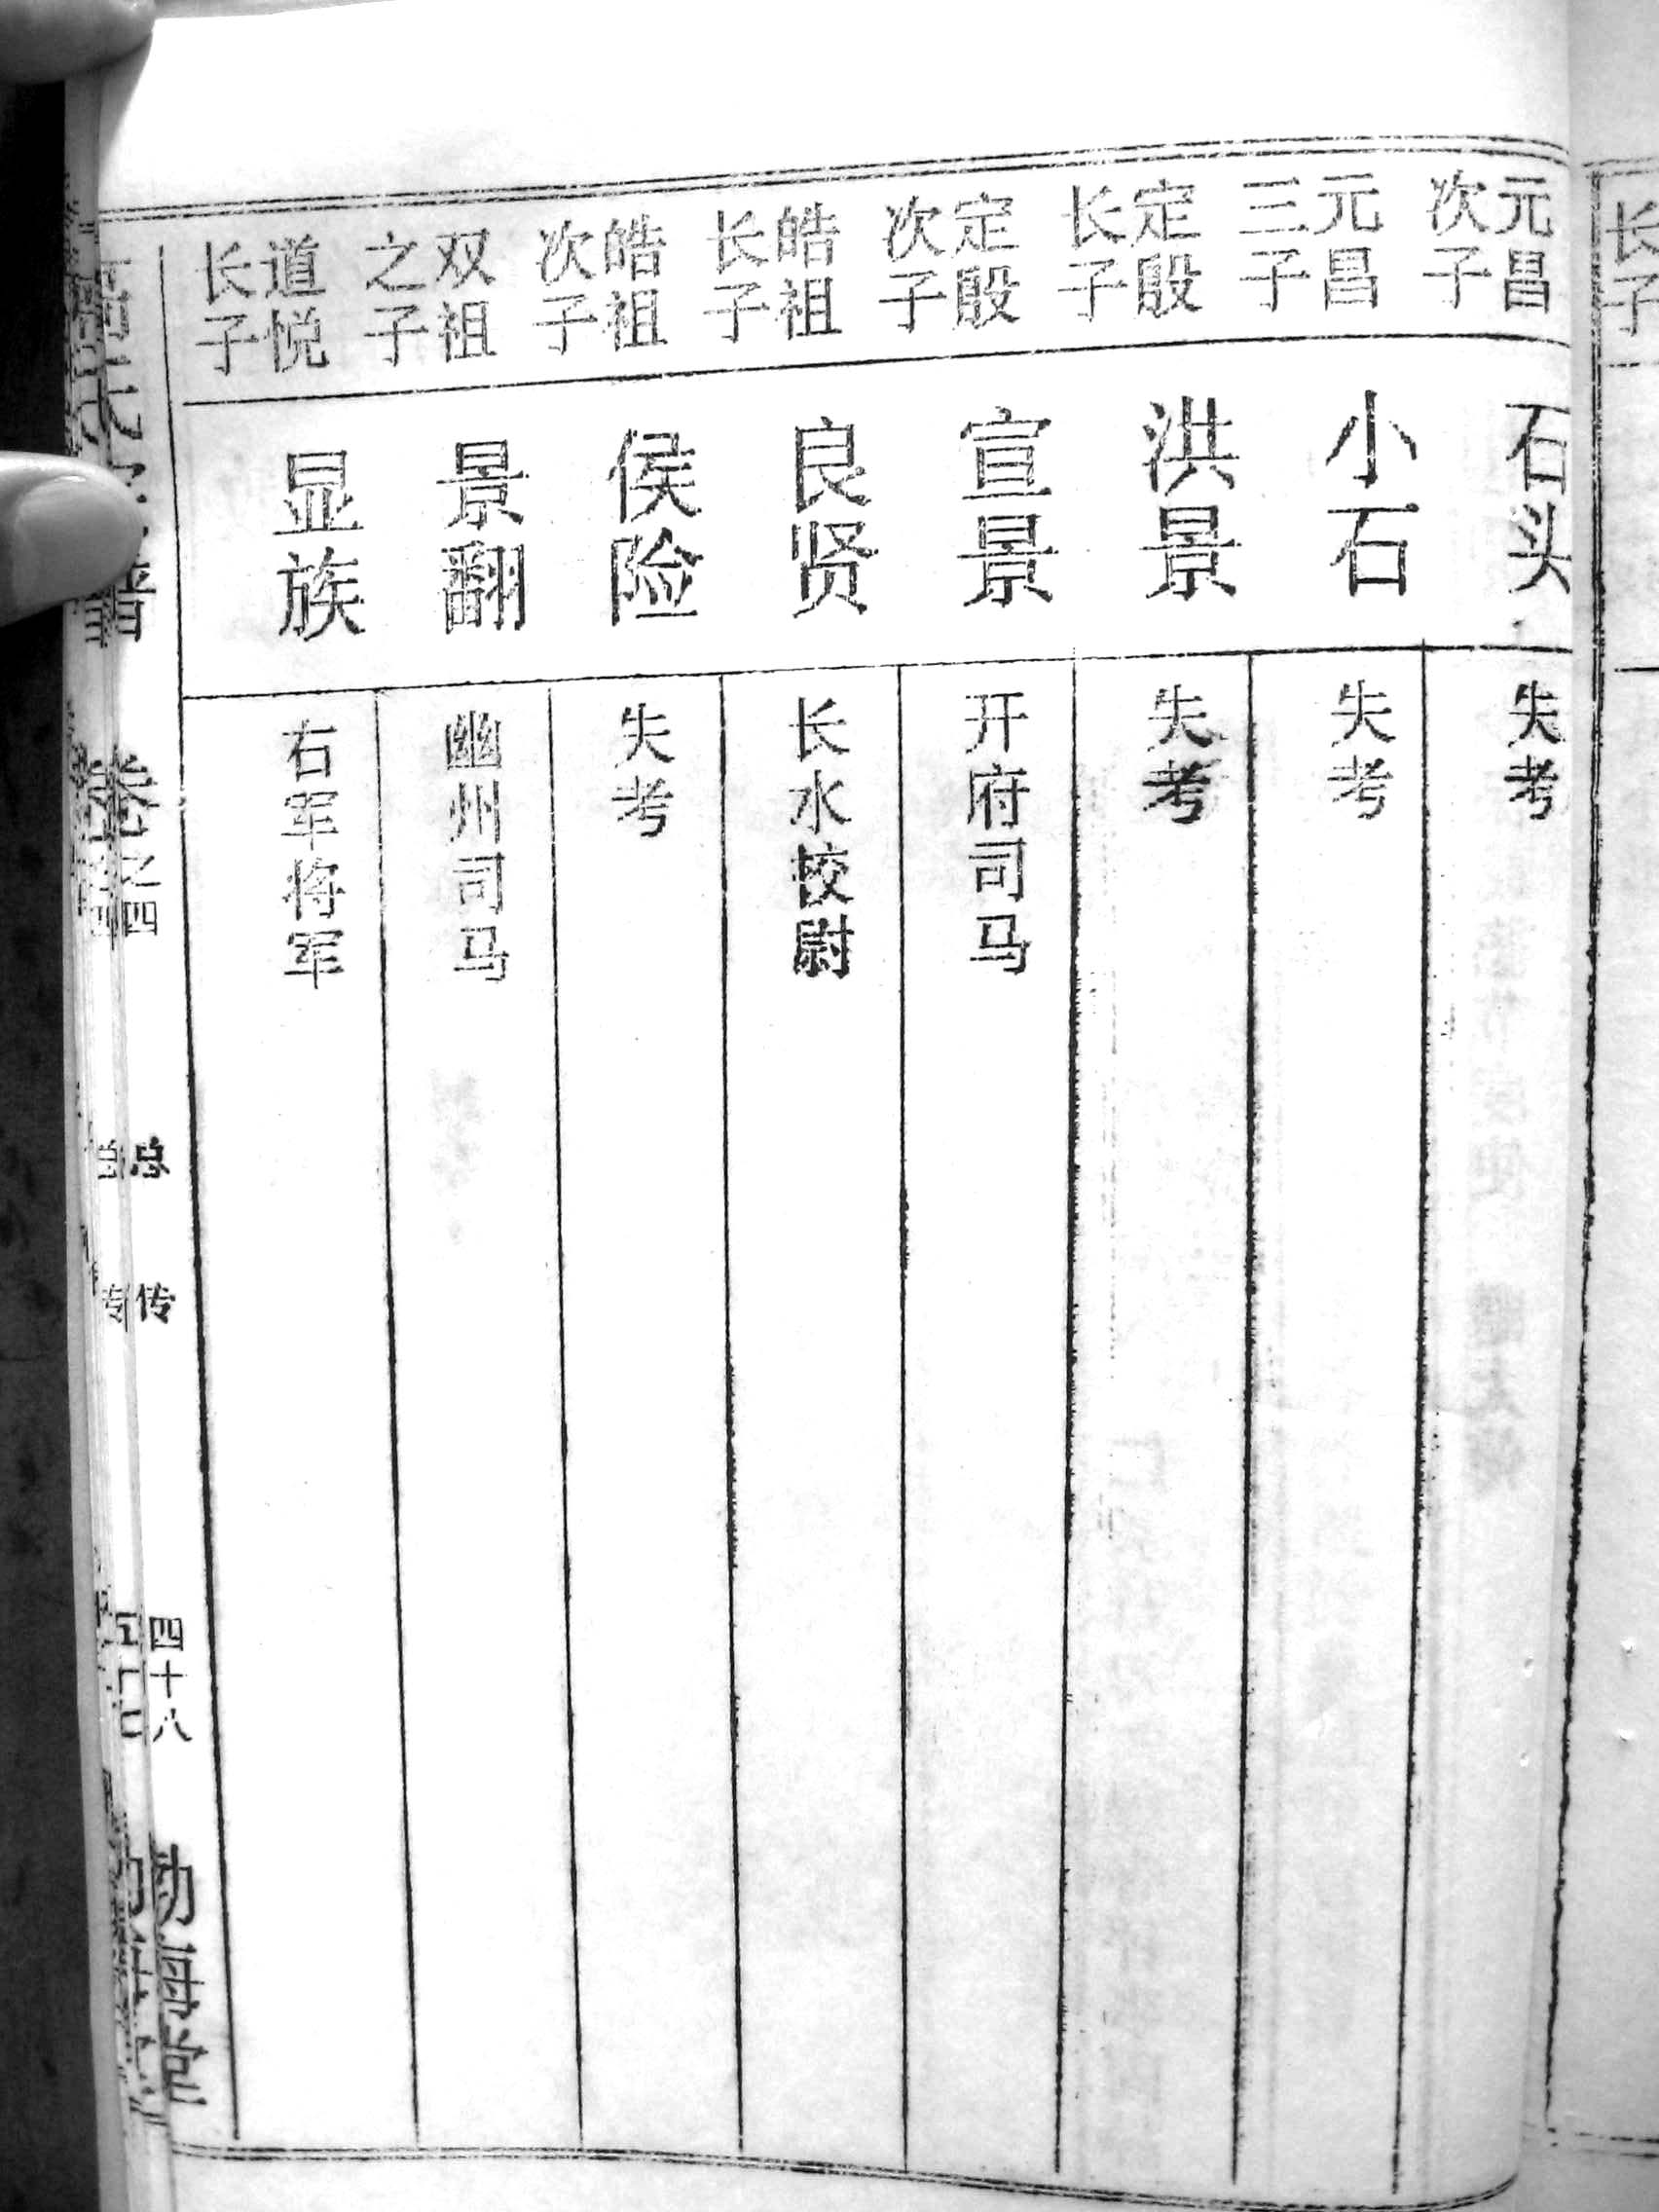 元昌
次子
石头
失考
元昌
三子
小石
失考
定殷
长子
洪景
失考
定殷
次子
宣景
开府司马
皓祖
长子
良贤
长水校尉
皓祖
次子
侯险
失考
双祖
之子
景翻
幽州司马
道悦
长子
显族
右军将军
卷之四
总传
四十八
长子